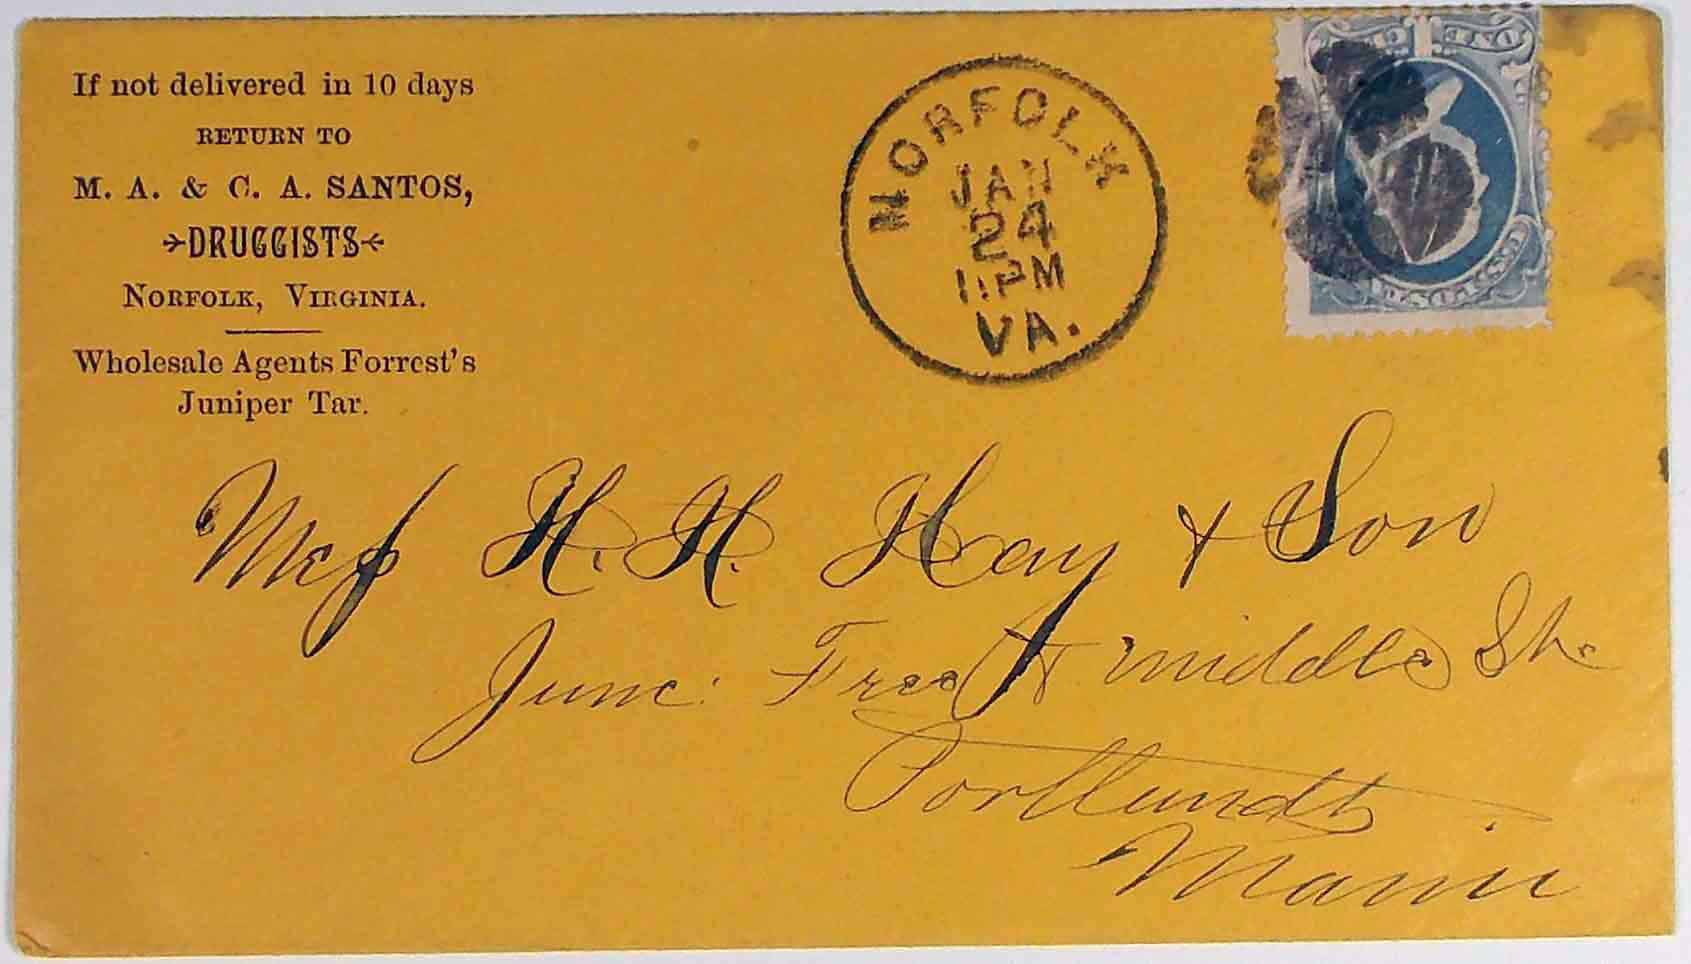 If not delivered in 10 days
RETURN TO
M. A. & C. A. SANTOS,
DRUGGISTS
NORFOLK, VIRGINIA.
Wholesale Agents Forrest's
Juniper Tar.
NORFOLK
JAN
24
11PM
VA.
H. H. Hay & Son
Junc: Free & Middle Sts.
Portland
Maine